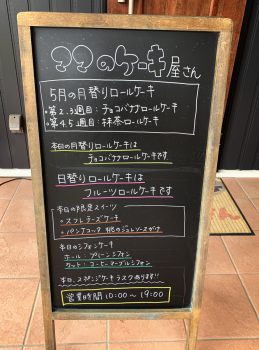 ママのケーキ屋さん
5月の月替りロールケーキ
・第2.3週目：チョコバナナロールケーキ
・第4.5週目：抹茶ロールケーキ
本日の月替りロールケーキは
チョコバナナロールケーキです
日替りロールケーキは
フルーツロールケーキです
本日の限定スイーツ
・スフレチーズケーキ
・パンナコッタ 桃のジュレソースがけ
本日のシフォンケーキ
ホール：プレーンシフォン
カット：コーヒーマーブルシフォン
本日、スポンジケーキラスクあります!!
営業時間10:00〜19:00